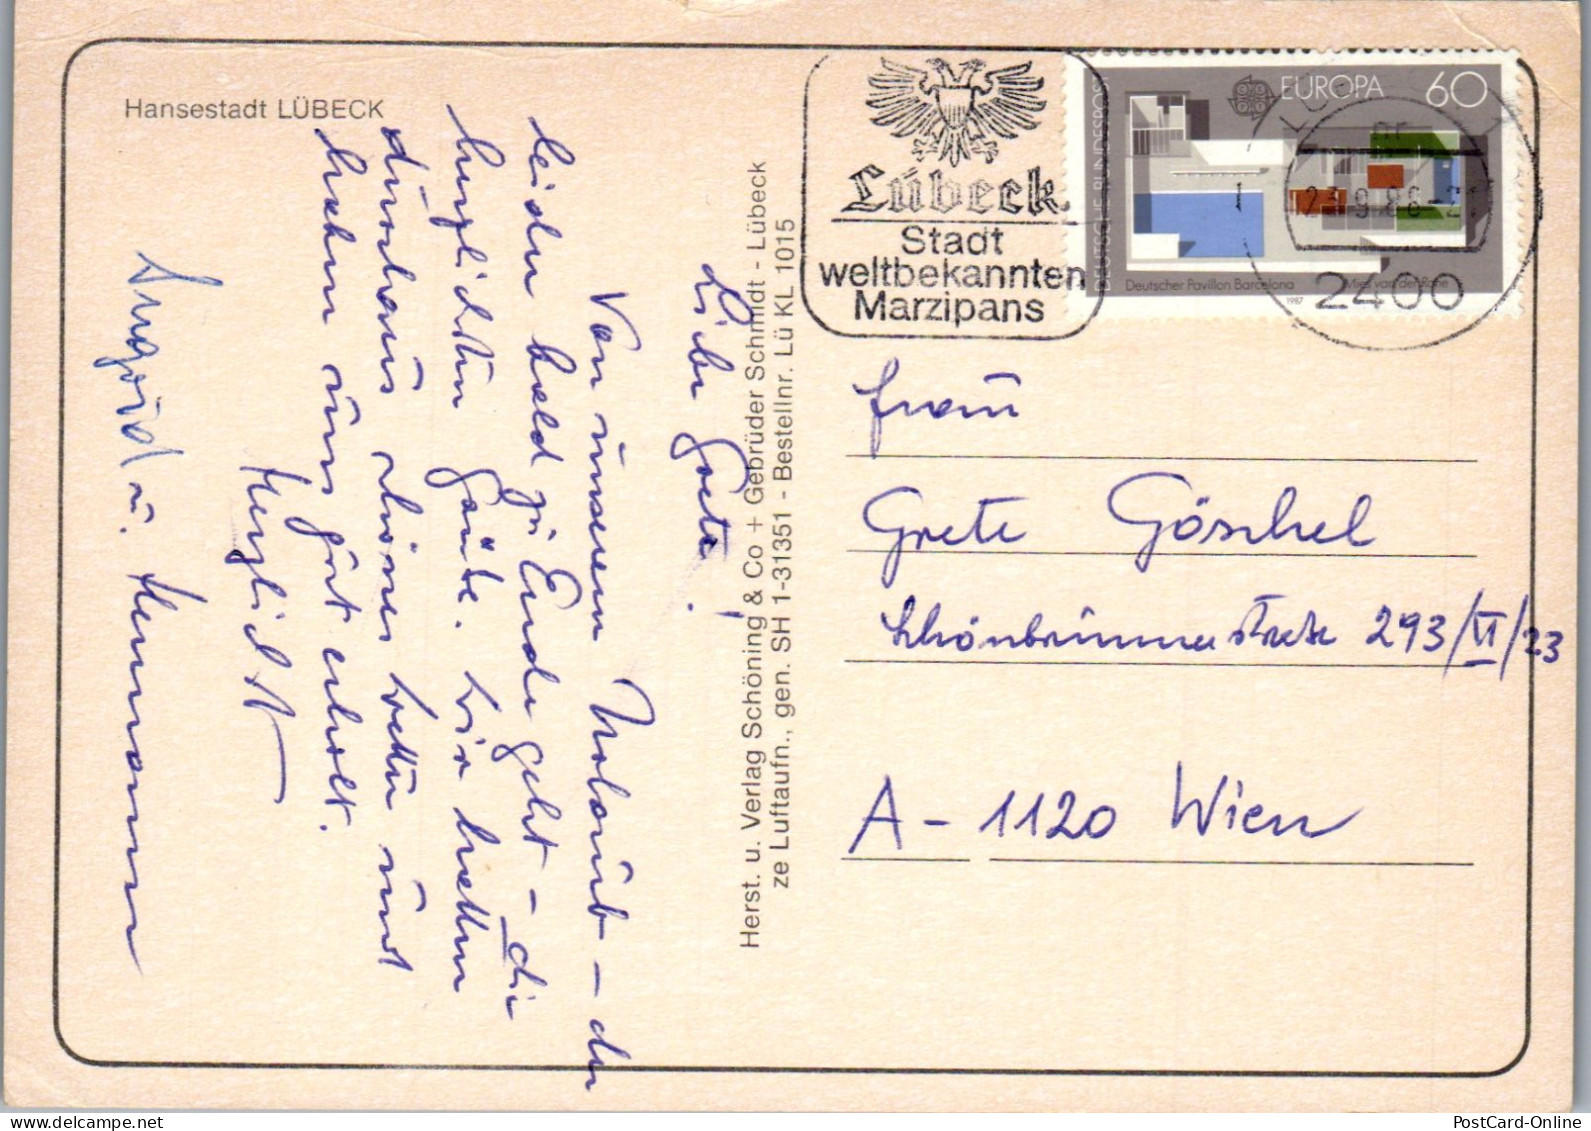 Hansestadt LÜBECK
Liebe Grete!
Von unserem Urlaub – der
leider bald zu Ende geht – die
herzlichsten Grüße. Wir hatten
durchaus schönes Wetter und
haben uns gut erholt.
Herzlichst
Ingrid u. Hermann
Herst. u. Verlag Schöning & Co + Gebrüder Schmidt - Lübeck
ze Luftaufn., gen. SH 1-31351 - Bestellnr. Lü KL 1015
Lübeck
Stadt
weltbekannten
Marzipans
DEUTSCHE BUNDESPOST
EUROPA 60
Deutscher Pavillon Barcelona
Mies van der Rohe
1987
2400
Frau
Grete Göschel
Schönbrunnerstraße 293/VI/23
A - 1120 Wien
PostCard-Online